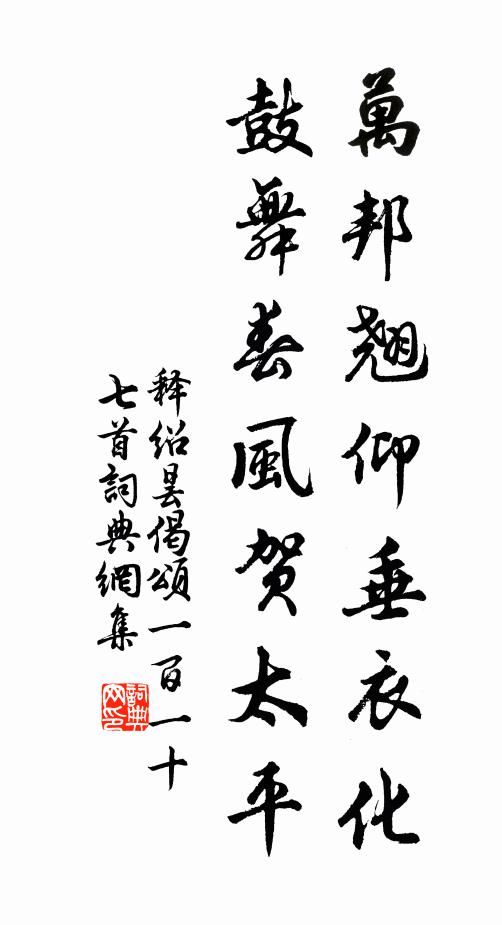 萬邦翹仰垂衣化
鼓舞春風賀太平
釋紹曇偈頌一百一十
七首詞典網集
詞典
网印